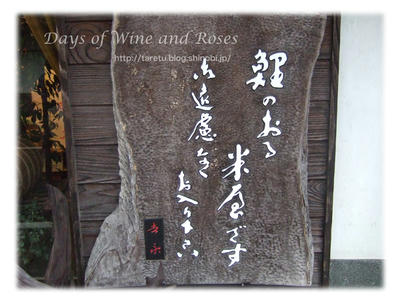 Days of Wine and Roses
http://taretu.blog.shinobi.jp/
鯉のおる
米屋です
御遠慮なく
お入り下さい